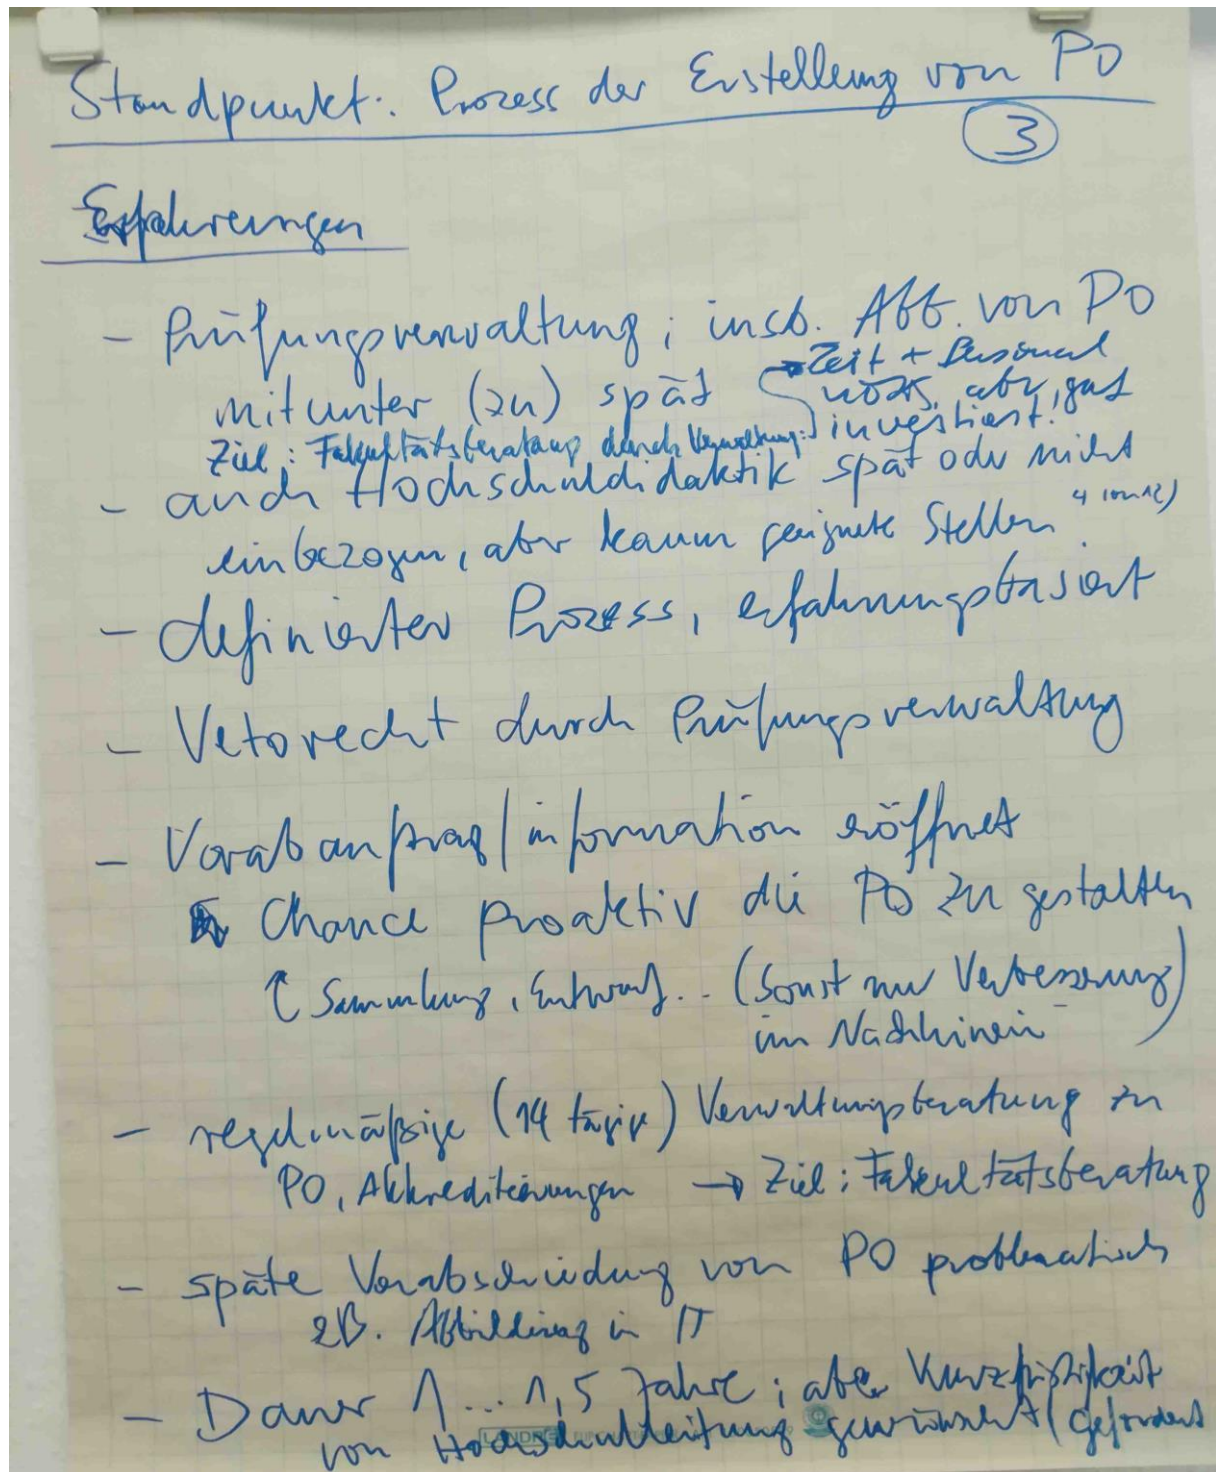 Standpunkt: Prozess der Erstellung von PO
3
Erfahrungen
- Prüfungsverwaltung, insb. Abb. von PO
mitunter (zu) spät
→ Zeit + Personal
nötig, aber "gut
investiert!"
Ziel: Fakultätsberatung durch Verwaltung
- auch Hochschuldidaktik spät oder nicht
einbezogen, aber kaum geeignete Stellen
- definierter Prozess, erfahrungsbasiert
- Vetorecht durch Prüfungsverwaltung
- Vorabanfrag/information eröffnet
Chance proaktiv die PO zu gestalten
↑ Sammlung, Entwurf.. (Sonst nur Verbesserung
im Nachhinein)
- regelmäßige (14 tägige) Verwaltungsberatung zu
PO, Akkreditierungen → Ziel: Fakultätsberatung
- späte Verabschiedung von PO problematisch
zB. Abbildung in IT
- Dauer 1...1,5 Jahre; aber Kurzfristigkeit
von Hochschulleitung gewünscht/gefordert